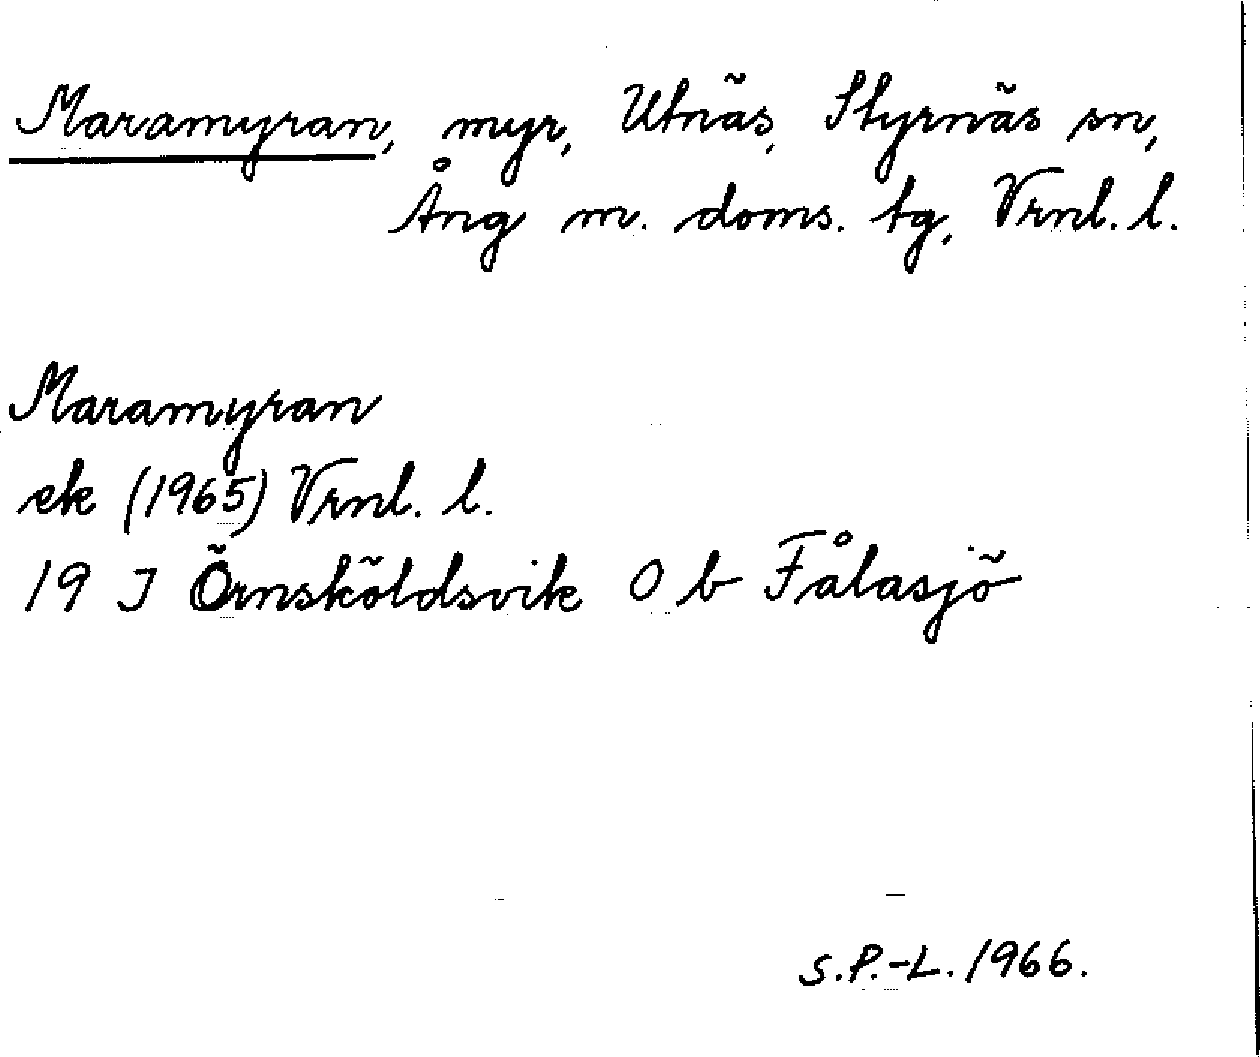 Maramyran, myr, Utnäs, Styrnäs sn,
Ång m. doms. tg, Vrnl. l.
Maramyran
ek (1965) Vrnl. l.
19 J Örnsköldsvik O b Fålasjö
S.P.-L. 1966.